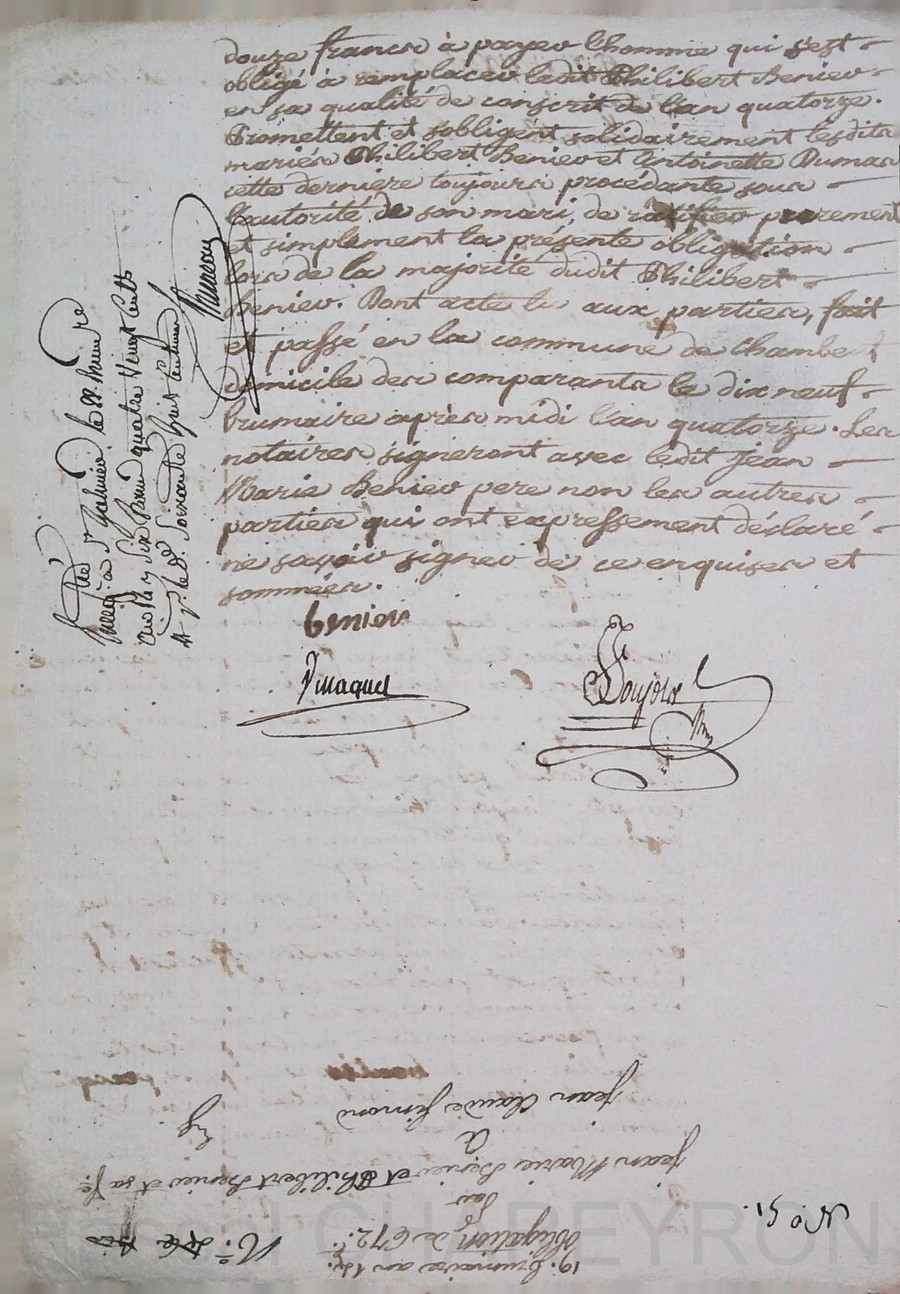 douze francs à payer l'homme qui s'est
obligé à remplacer ledit Philibert Benier
en sa qualité de conscrit de l'an quatorze.
Promettent et s'obligent solidairement lesdits
mariés Philibert Benier et Antoinette Dumas
cette dernière toujours procédante sous
l'autorité de son mari, de ratifier purement
et simplement la présente obligation
lors de la majorité dudit Philibert
Benier. Dont acte lu aux parties, fait
et passé en la commune de Chambe
domicile des comparants le dix neuf
brumaire après midi l'an quatorze. Les
notaires signeront avec ledit Jean
Marie Benier pere non les autres
parties qui ont expressement déclaré
ne savoir signer de ce enquises et
sommées.
benier
Pinaquet
à St. Galmier le
quatre Vingt
Soixante huit centimes
19. brumaire an 14.
Obligation de 672.
Par
Jean Marie Benier et Philibert Benier et sa fe
A
Jean Claude Simond
N.o 51.
Pascal CHAPEYRON